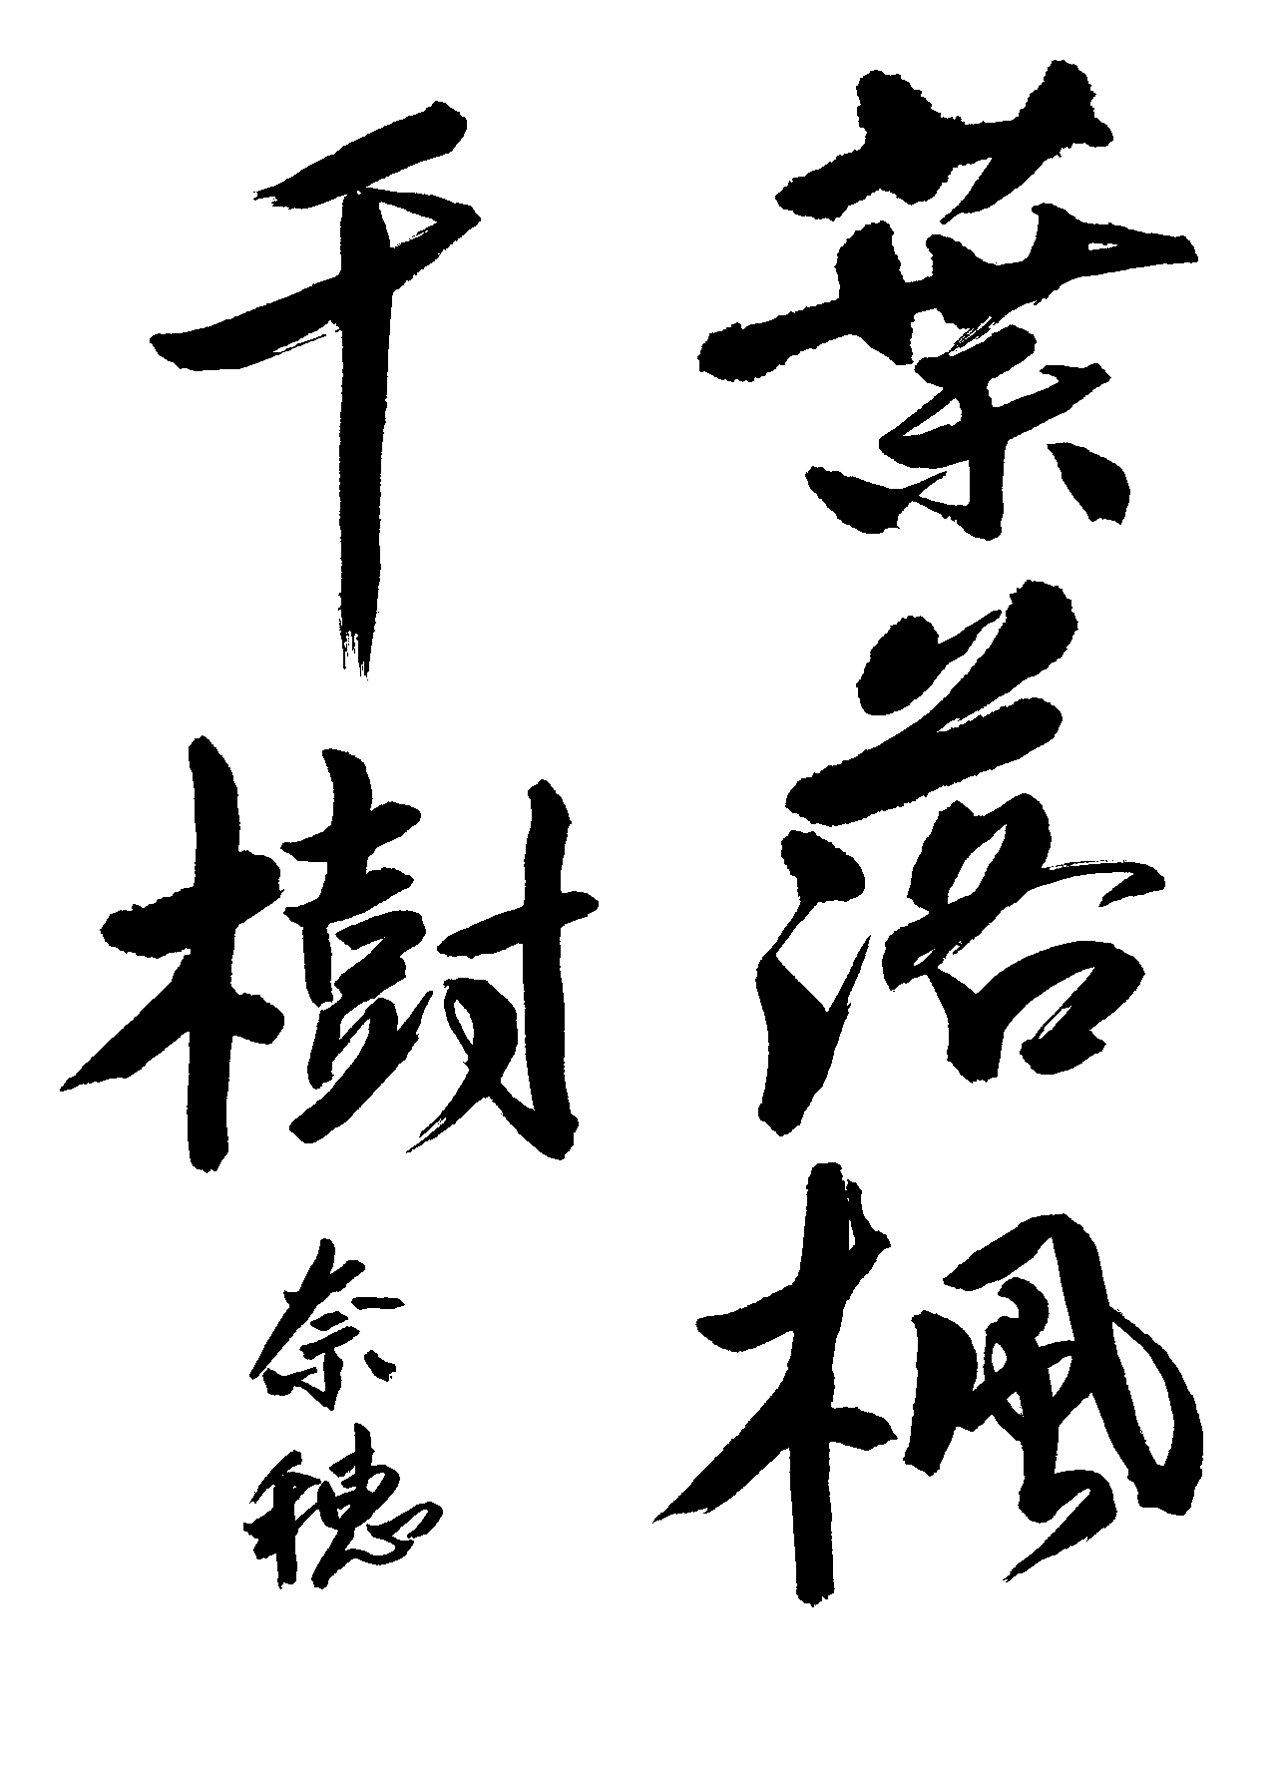 葉落楓
千樹
奈穂